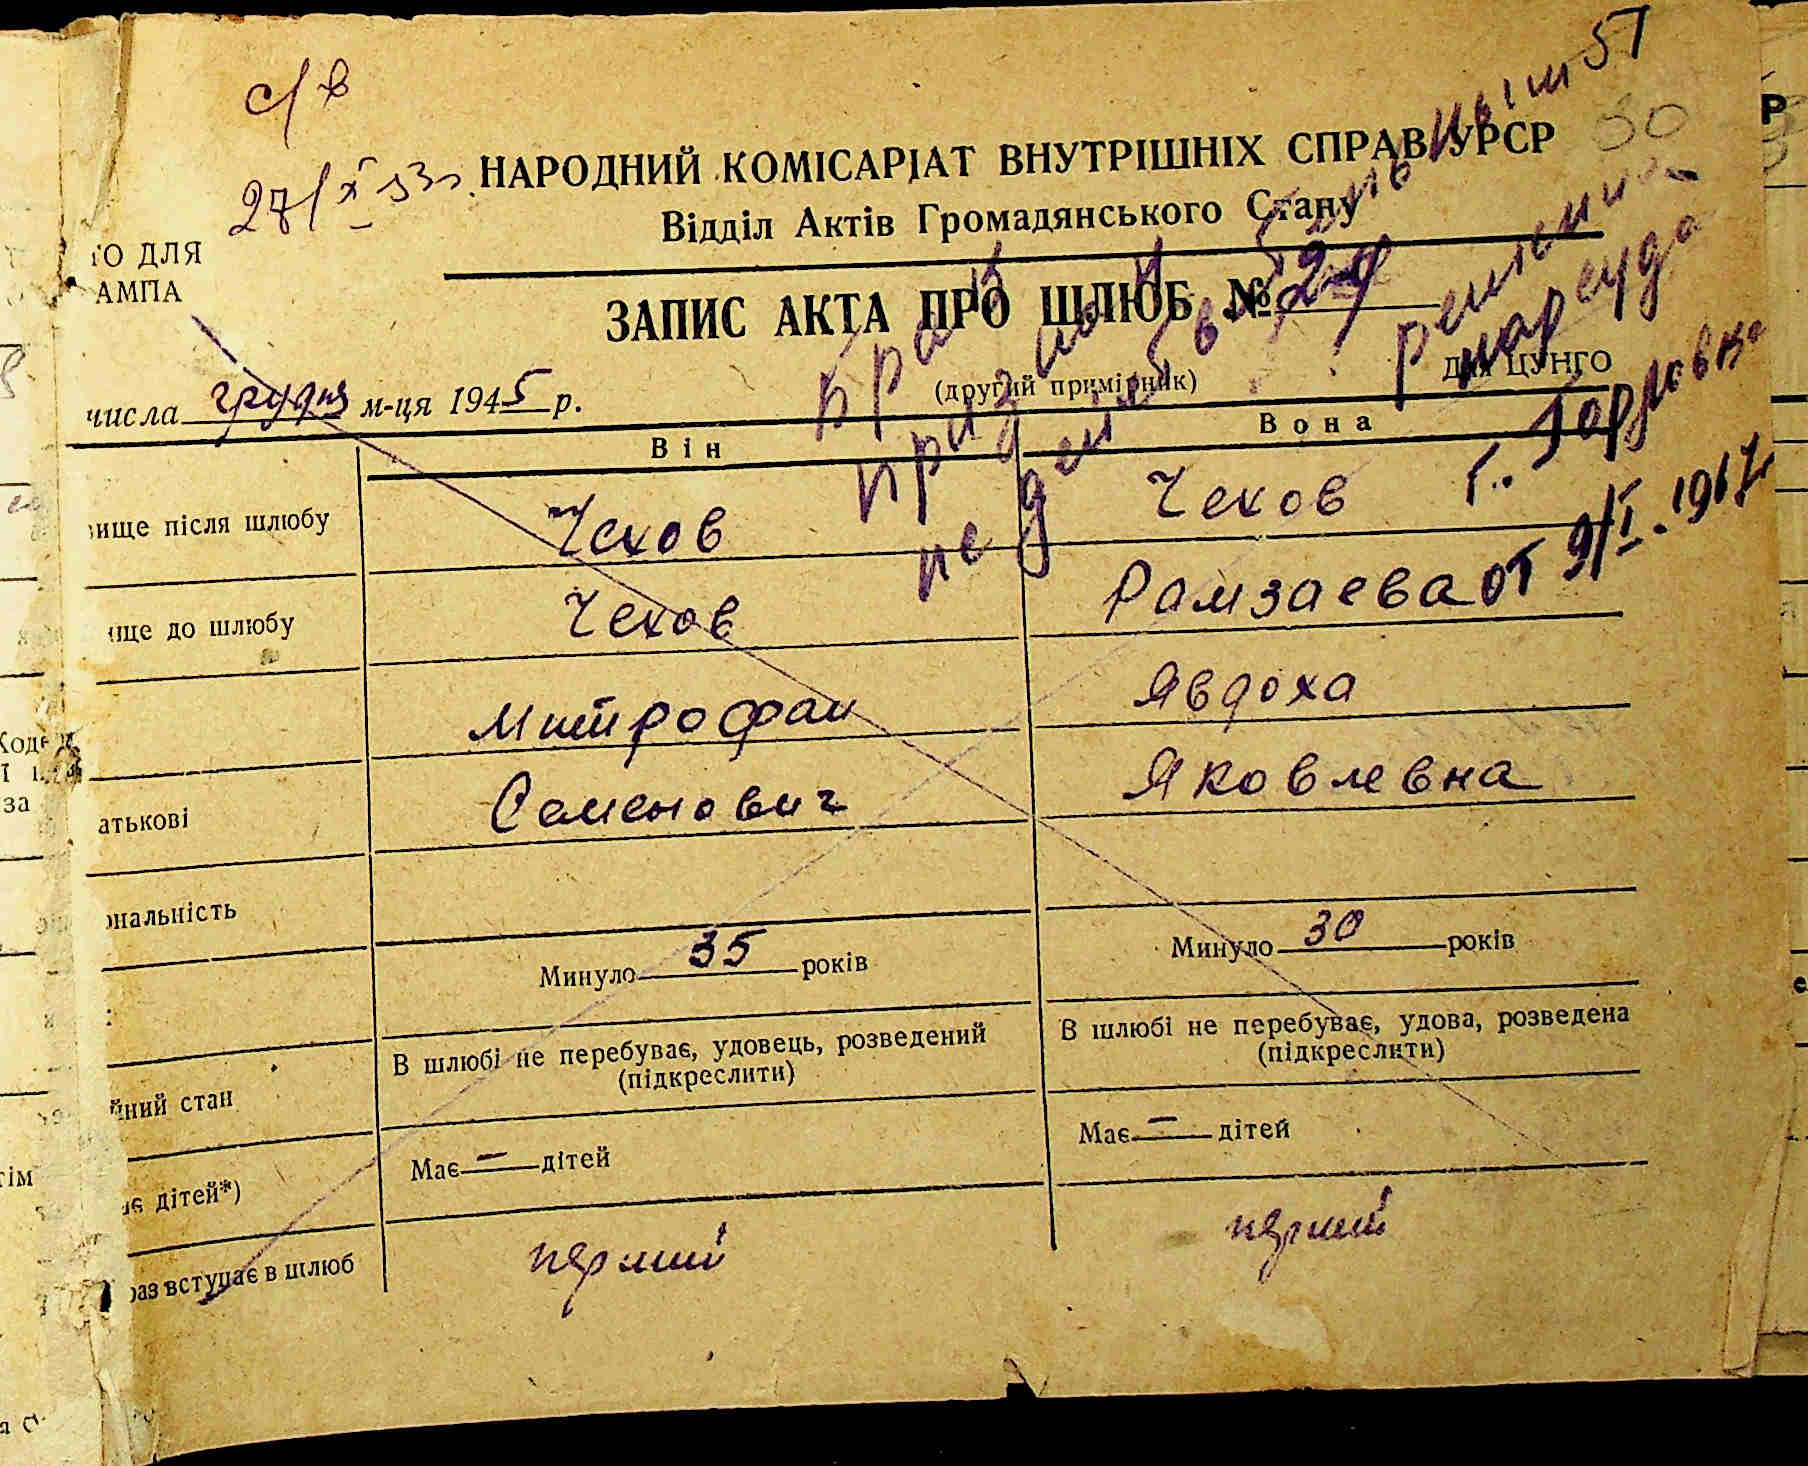 с/в
27/X 53г.
51
30
НАРОДНИЙ КОМІСАРІАТ ВНУТРІШНІХ СПРАВ УРСР
Відділ Актів Громадянського Стану
ГО ДЛЯ
АМПА
ЗАПИС АКТА ПРО ШЛЮБ №
(другий примірник)
Для ЦУНГО
числа грудня м-ця 1945 р.
Брак признан недействительным
решением нарсуда
г. Горловка
от 9/I. 1967г.
Він Вона
вище після шлюбу Чехов Чехов
ище до шлюбу Чехов Рамзаева
Митрофан Явдоха
атькові Семенович Яковлевна
ональність
Минуло 35 років Минуло 30 років
йний стан В шлюбі не перебуває, удовець, розведений (підкреслити) В шлюбі не перебуває, удова, розведена (підкреслити)
ає дітей*) Має — дітей Має — дітей
раз вступає в шлюб перший перший